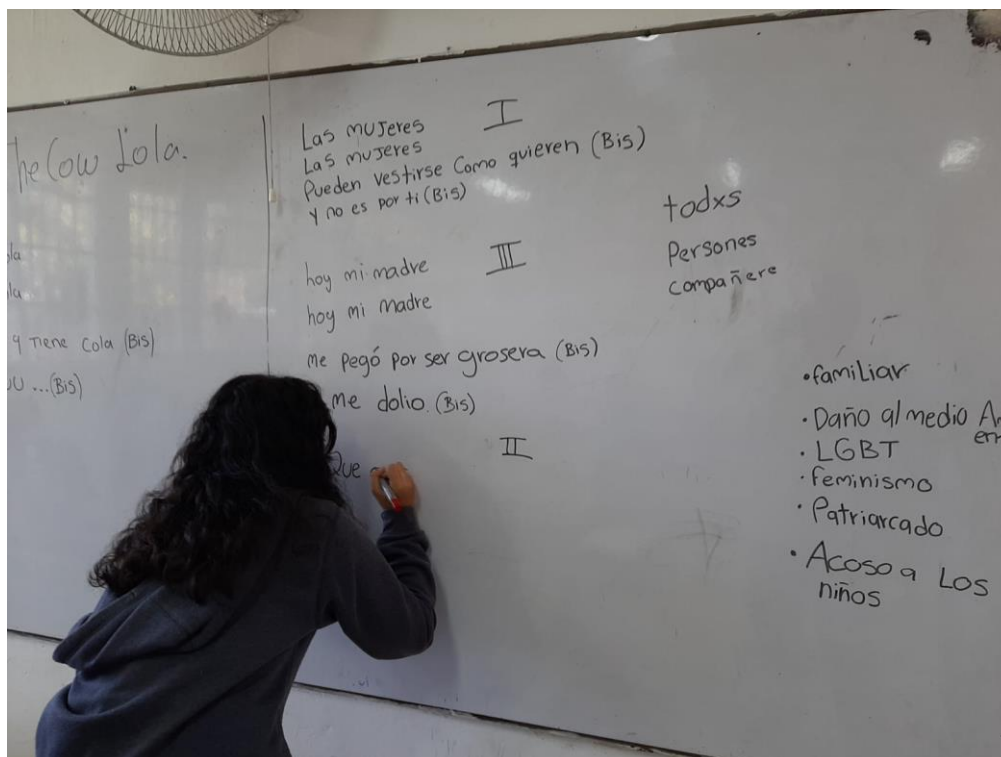 he Cow Lola.
la
la
y tiene cola (Bis)
UU ...(Bis)
I
Las mujeres
Las mujeres
Pueden vestirse como quieren (Bis)
y no es por ti (Bis)
III
hoy mi madre
hoy mi madre
me pegó por ser grosera (Bis)
me dolio. (Bis)
II
Que
todxs
Persones
compañere
• familiar
• Daño al medio A
em
• LGBT
• feminismo
• Patriarcado
• Acoso a Los
niños